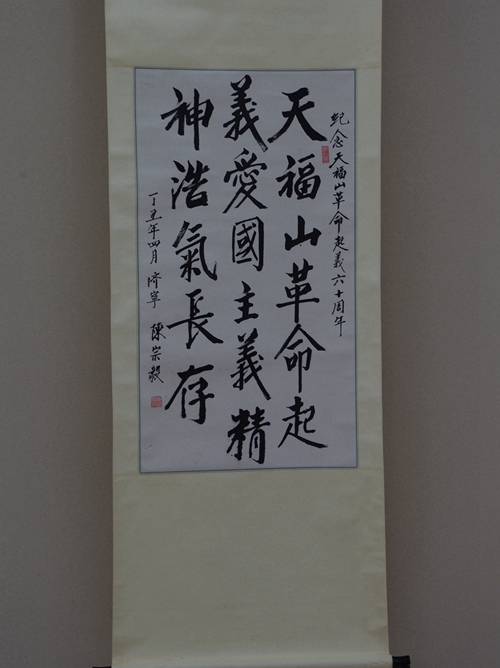 纪念天福山革命起義六十周年
天福山革命起
義愛國主義精
神浩氣長存
丁丑年四月 济寧 陳崇毅